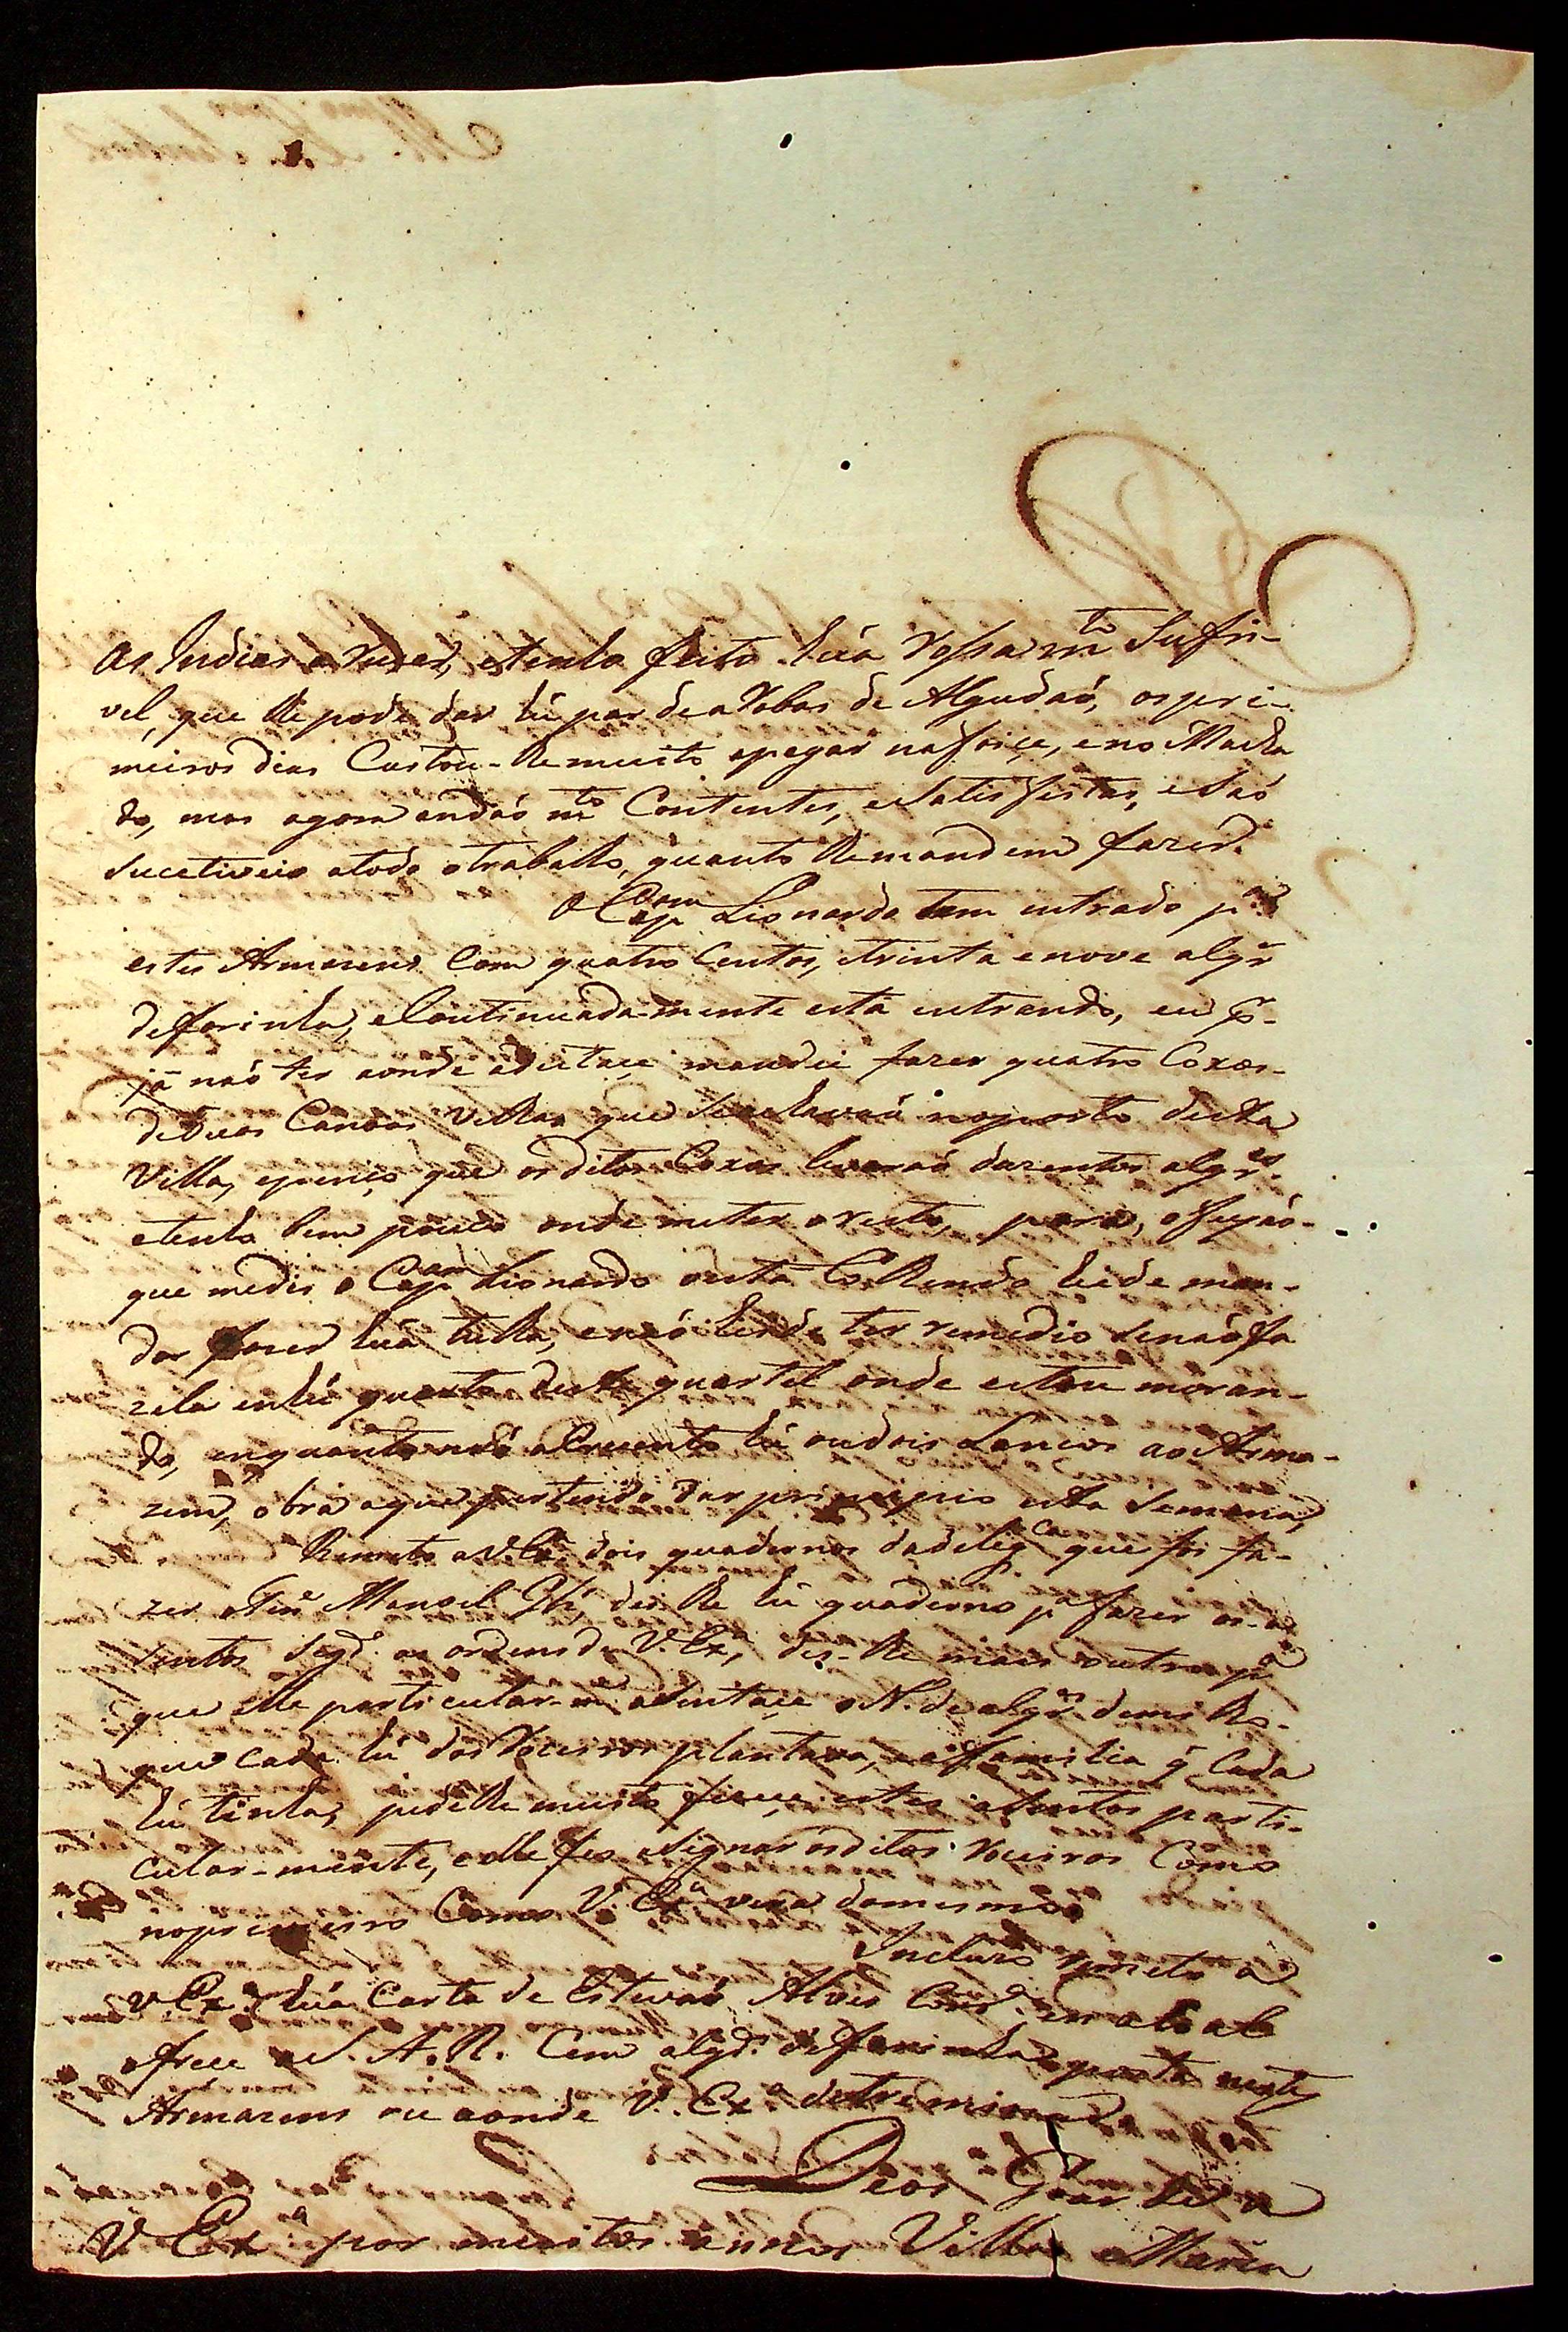 as Indias a Rosar, e tenho feito huã Rossa m.to sufri-
vel, que lhe pode dar hũ par de arobas de Algudaó, os pri-
meiros dias Custou-lhe muito apegar na foiçe, e no Macha
do, mas agora andaó m.to Contentes, e Satisfeitas, e Saó
sucetiveis a todo o trabalho, quanto lhe mandem fazer.
O Cap.am Lionardo tem entrado p.a
estes Armazens Com quatro Centos, e trinta e nove alq.r
de farinha, e Continuada-mente está entrando, eu p.
já naó ter aonde adeitaçe mandei fazer quatro Coxos
de duas Canoas Velhas que se achavaõ no porto desta
Villa, e penço que os ditos Coxos levaraó duzentos alqr.es
e tenho bem pouco onde meter o resto, para, o fejaó
que me dis o Cap.am Lionardo está Colhendo hei de man-
dar fazer huã tulha, e naó hei de ter remedio senaó fa
zela em hũ quarto deste quartel onde estou moran-
do, enquanto naó acrecento hũ ou dois Lancos ao Arma-
zem, obra a que pertendo dar principio esta Semana,
Remeto a V. Ex.a dois quadernos da delig.ca que foi fa-
zer o Ten.e Manoel Jozé, dei-lhe hũ quaderno p.a fazer os a
sentos seg.do as ordens de V. Ex.a, dei-lhe mais outro p.a
que elle particular-m.e asentaçe o N. de alqr.es de milho
que cada hũ dos Roceiros plantava, e a familia q̃ Cada
hũ tinha, pedilhe muito fizeçe estes asentos parti-
cular-mente, e elle fes asignar os ditos roceiros Como
no primeiro Como V. Ex.a verá do mesmo
Incluzo remeto a
V. Ex.a huã Carta de Estevaó Alves
ofreçe a S. A. R. Cem alqr. de farinha posta nestes
Armazens ou aonde V. Ex.a detreminar
Deos Goarde a
V. Ex.a por muitos annos Villa Maria